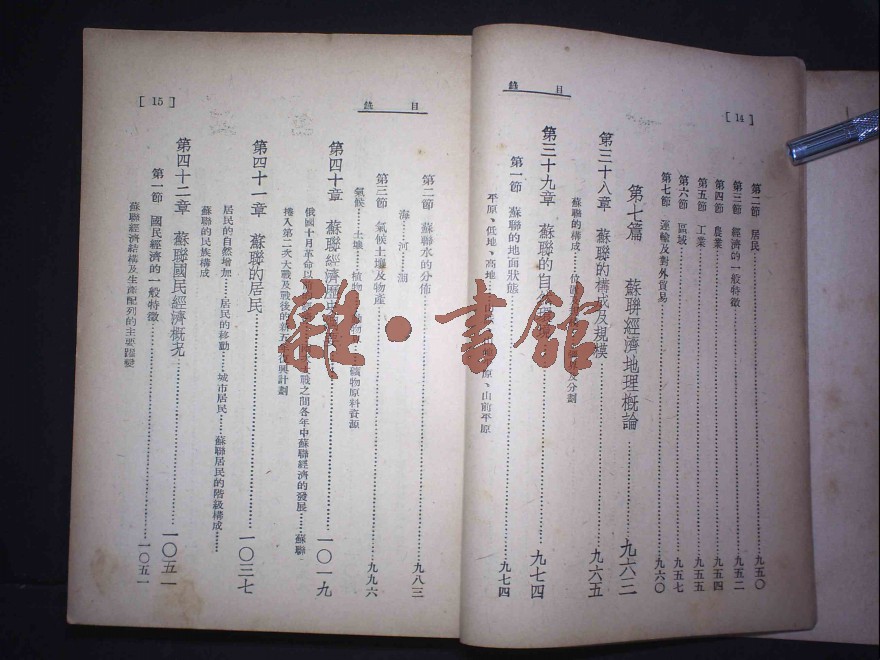 [ 14 ]
目 錄
第二節 居民……九五〇
第三節 經濟的一般特徵……九五二
第四節 農業……九五四
第五節 工業……九五五
第六節 區域……九五七
第七節 運輸及對外貿易……九六〇
第七篇 蘇聯經濟地理概論……九六三
第三十八章 蘇聯的構成及規模……九六五
蘇聯的構成……位置
及分劃
第三十九章 蘇聯的自然
九七四
第一節 蘇聯的地面狀態……九七四
平原、低地、高地
原、山前平原
目 錄
[ 15 ]
第二節 蘇聯水的分佈……九八三
海……河……湖
第三節 氣候土壤及物產……九九六
氣候……土壤……植物
礦物原料資源
第四十章 蘇聯經濟歷史
一〇一九
俄國十月革命以
戰之間各年中蘇聯經濟的發展……蘇聯
捲入第二次大戰及戰後的新五年復興計劃
第四十一章 蘇聯的居民……一〇三七
居民的自然增加……居民的移動……城市居民……蘇聯居民的階級構成……
蘇聯的民族構成
第四十二章 蘇聯國民經濟概况……一〇五一
第一節 國民經濟的一般特徵……一〇五一
蘇聯經濟結構及生產配列的主要蹤變
雜·書館